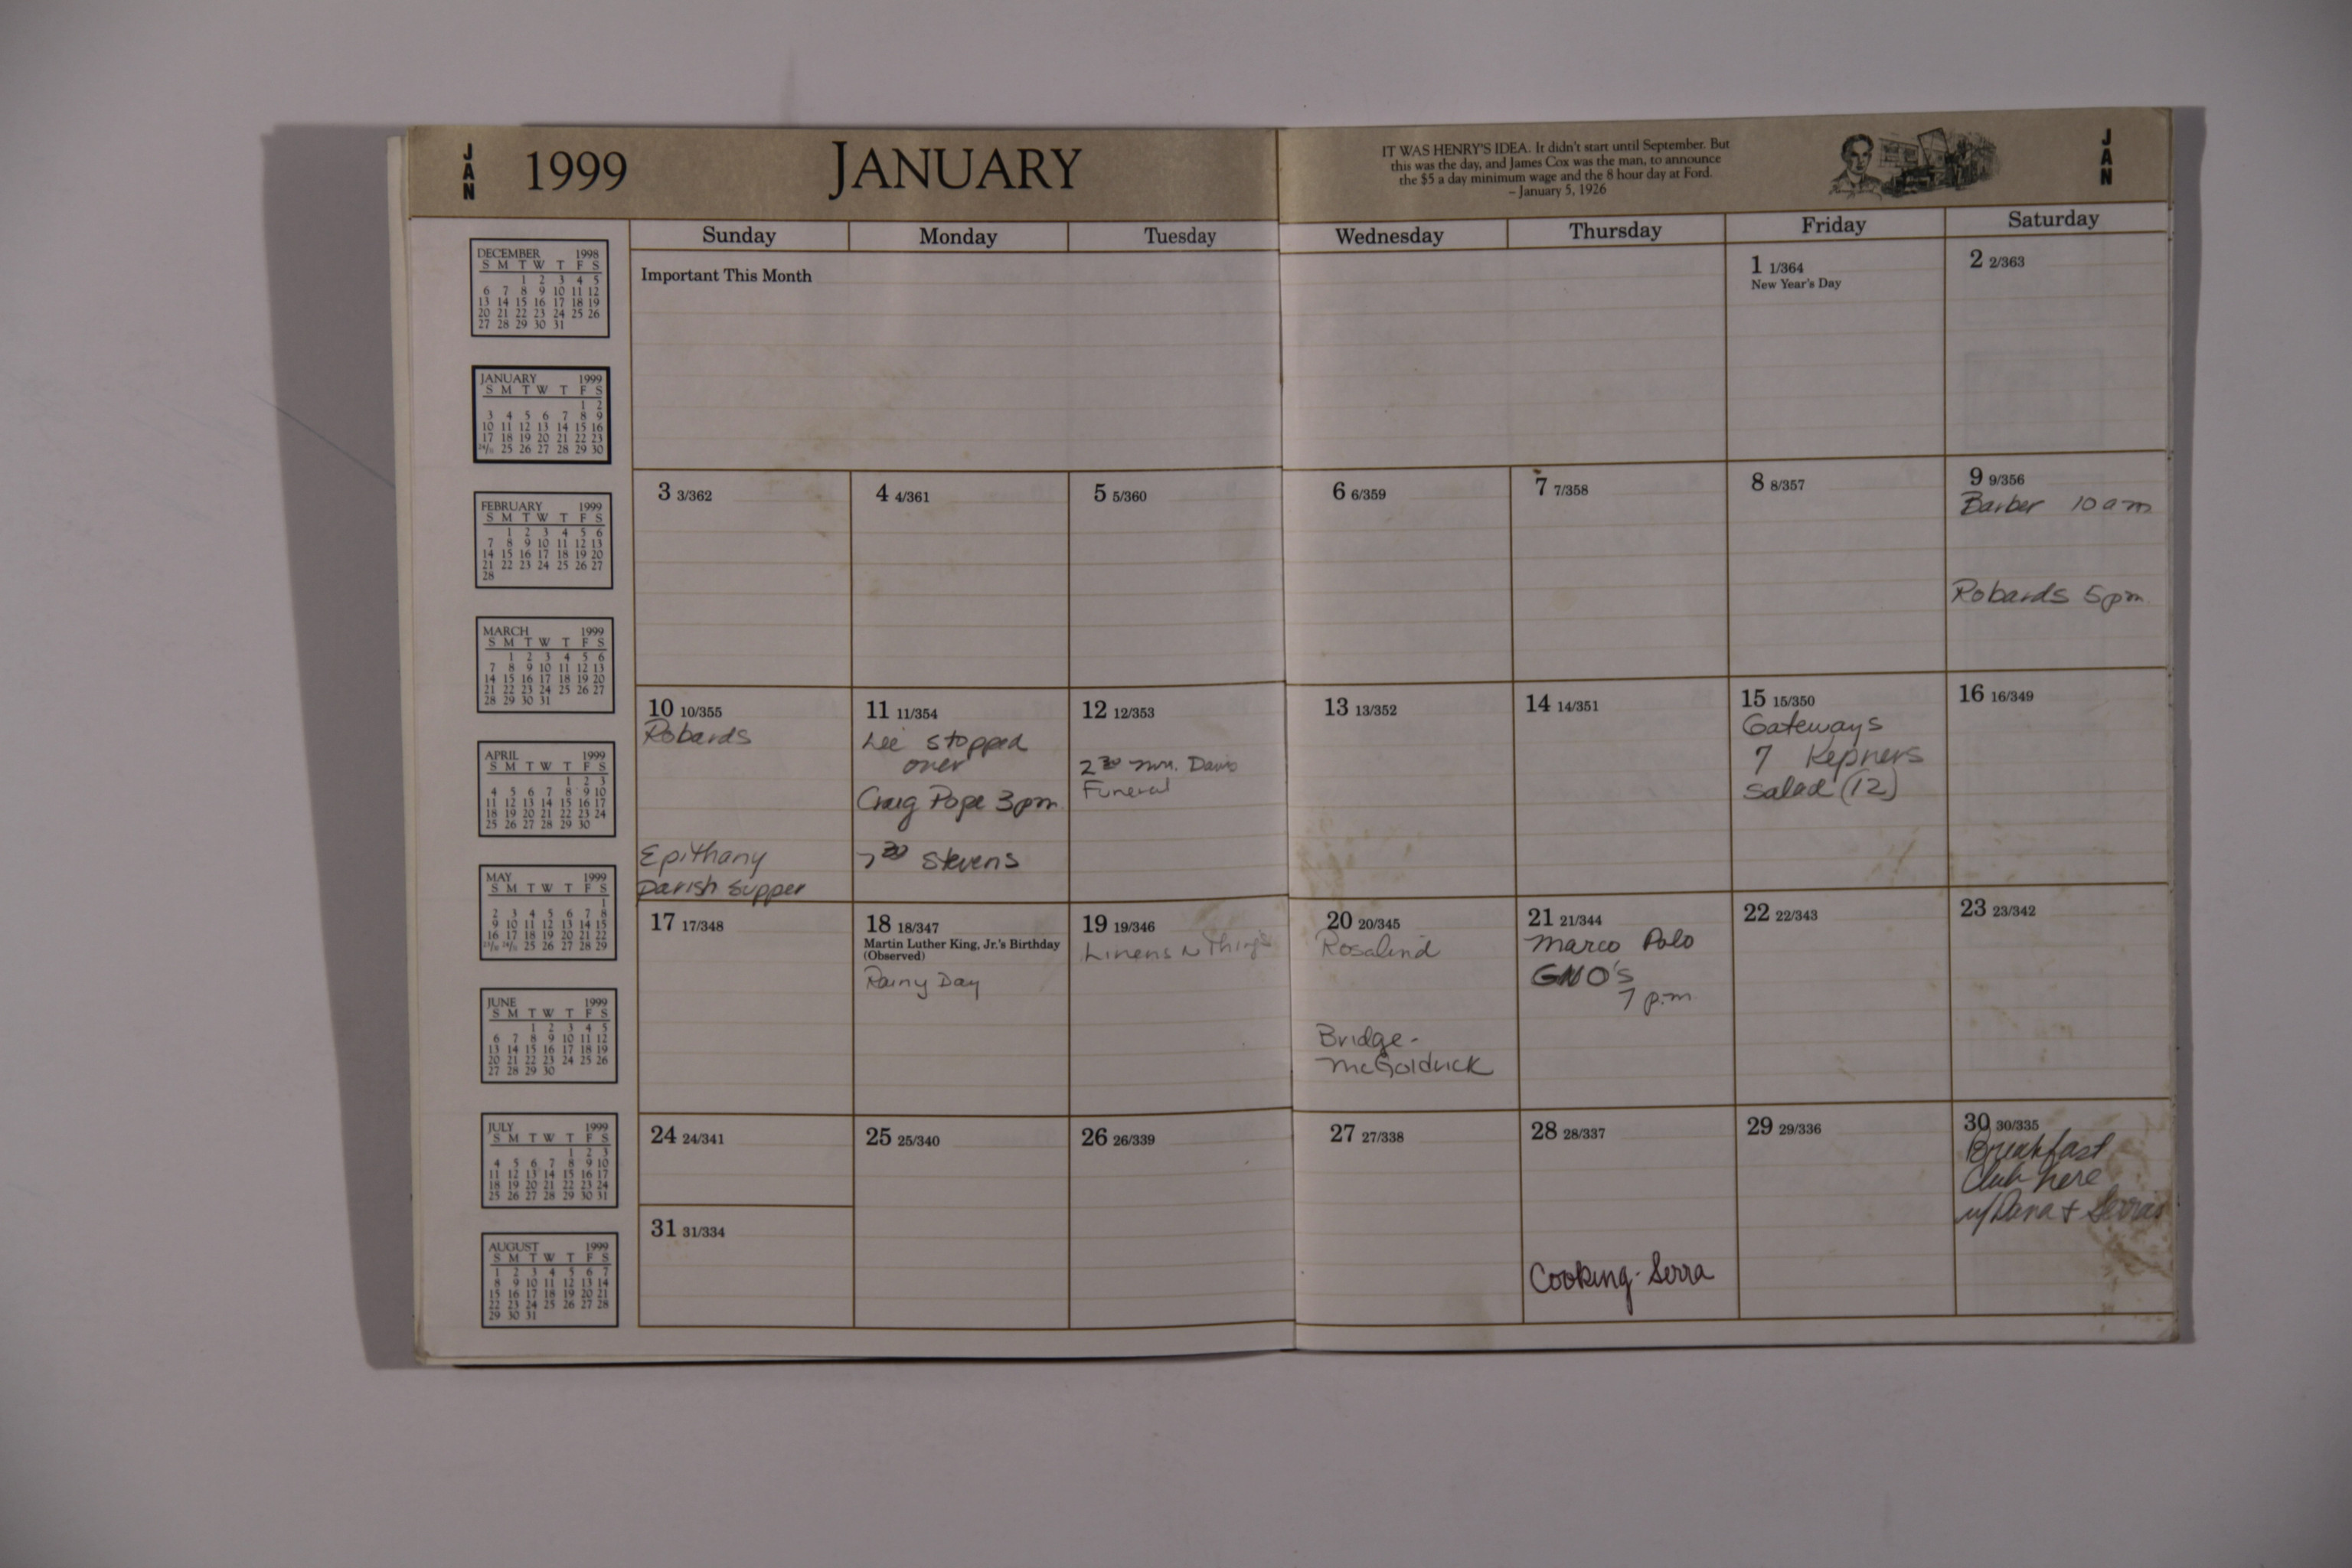 JAN
1999
JANUARY
IT WAS HENRY'S IDEA. It didn't start until September. But
this was the day, and James Cox was the man, to announce
the $5 a day minimum wage and the 8 hour day at Ford.
– January 5, 1926
JAN
Sunday Monday Tuesday Wednesday Thursday Friday Saturday
Important This Month
1 1/364
New Year's Day
2 2/363
3 3/362
4 4/361
5 5/360
6 6/359
7 7/358
8 8/357
9 9/356
Barber 10 am
Robards 5pm
10 10/355
Robards
Epithany
Parish Supper
11 11/354
Lee stopped
over
Craig Pope 3pm
7 30 Stevens
12 12/353
2 30 Mrs. Davis
Funeral
13 13/352
14 14/351
15 15/350
Gateways
7 Kepners
salad (12)
16 16/349
17 17/348
18 18/347
Martin Luther King, Jr.'s Birthday
(Observed)
Rainy Day
19 19/346
Linens N Things
20 20/345
Rosalind
Bridge-
McGoldrick
21 21/344
Marco Polo
GNO's
7 p.m
22 22/343
23 23/342
24 24/341
31 31/334
25 25/340
26 26/339
27 27/338
28 28/337
Cooking-Serra
29 29/336
30 30/335
Breakfast
Club here
w/Dana + Serras
DECEMBER 1998
S M T W T F S
1 2 3 4 5
6 7 8 9 10 11 12
13 14 15 16 17 18 19
20 21 22 23 24 25 26
27 28 29 30 31
JANUARY 1999
S M T W T F S
1 2
3 4 5 6 7 8 9
10 11 12 13 14 15 16
17 18 19 20 21 22 23
24/31 25 26 27 28 29 30
FEBRUARY 1999
S M T W T F S
1 2 3 4 5 6
7 8 9 10 11 12 13
14 15 16 17 18 19 20
21 22 23 24 25 26 27
28
MARCH 1999
S M T W T F S
1 2 3 4 5 6
7 8 9 10 11 12 13
14 15 16 17 18 19 20
21 22 23 24 25 26 27
28 29 30 31
APRIL 1999
S M T W T F S
1 2 3
4 5 6 7 8 9 10
11 12 13 14 15 16 17
18 19 20 21 22 23 24
25 26 27 28 29 30
MAY 1999
S M T W T F S
1
2 3 4 5 6 7 8
9 10 11 12 13 14 15
16 17 18 19 20 21 22
23/30 24/31 25 26 27 28 29
JUNE 1999
S M T W T F S
1 2 3 4 5
6 7 8 9 10 11 12
13 14 15 16 17 18 19
20 21 22 23 24 25 26
27 28 29 30
JULY 1999
S M T W T F S
1 2 3
4 5 6 7 8 9 10
11 12 13 14 15 16 17
18 19 20 21 22 23 24
25 26 27 28 29 30 31
AUGUST 1999
S M T W T F S
1 2 3 4 5 6 7
8 9 10 11 12 13 14
15 16 17 18 19 20 21
22 23 24 25 26 27 28
29 30 31